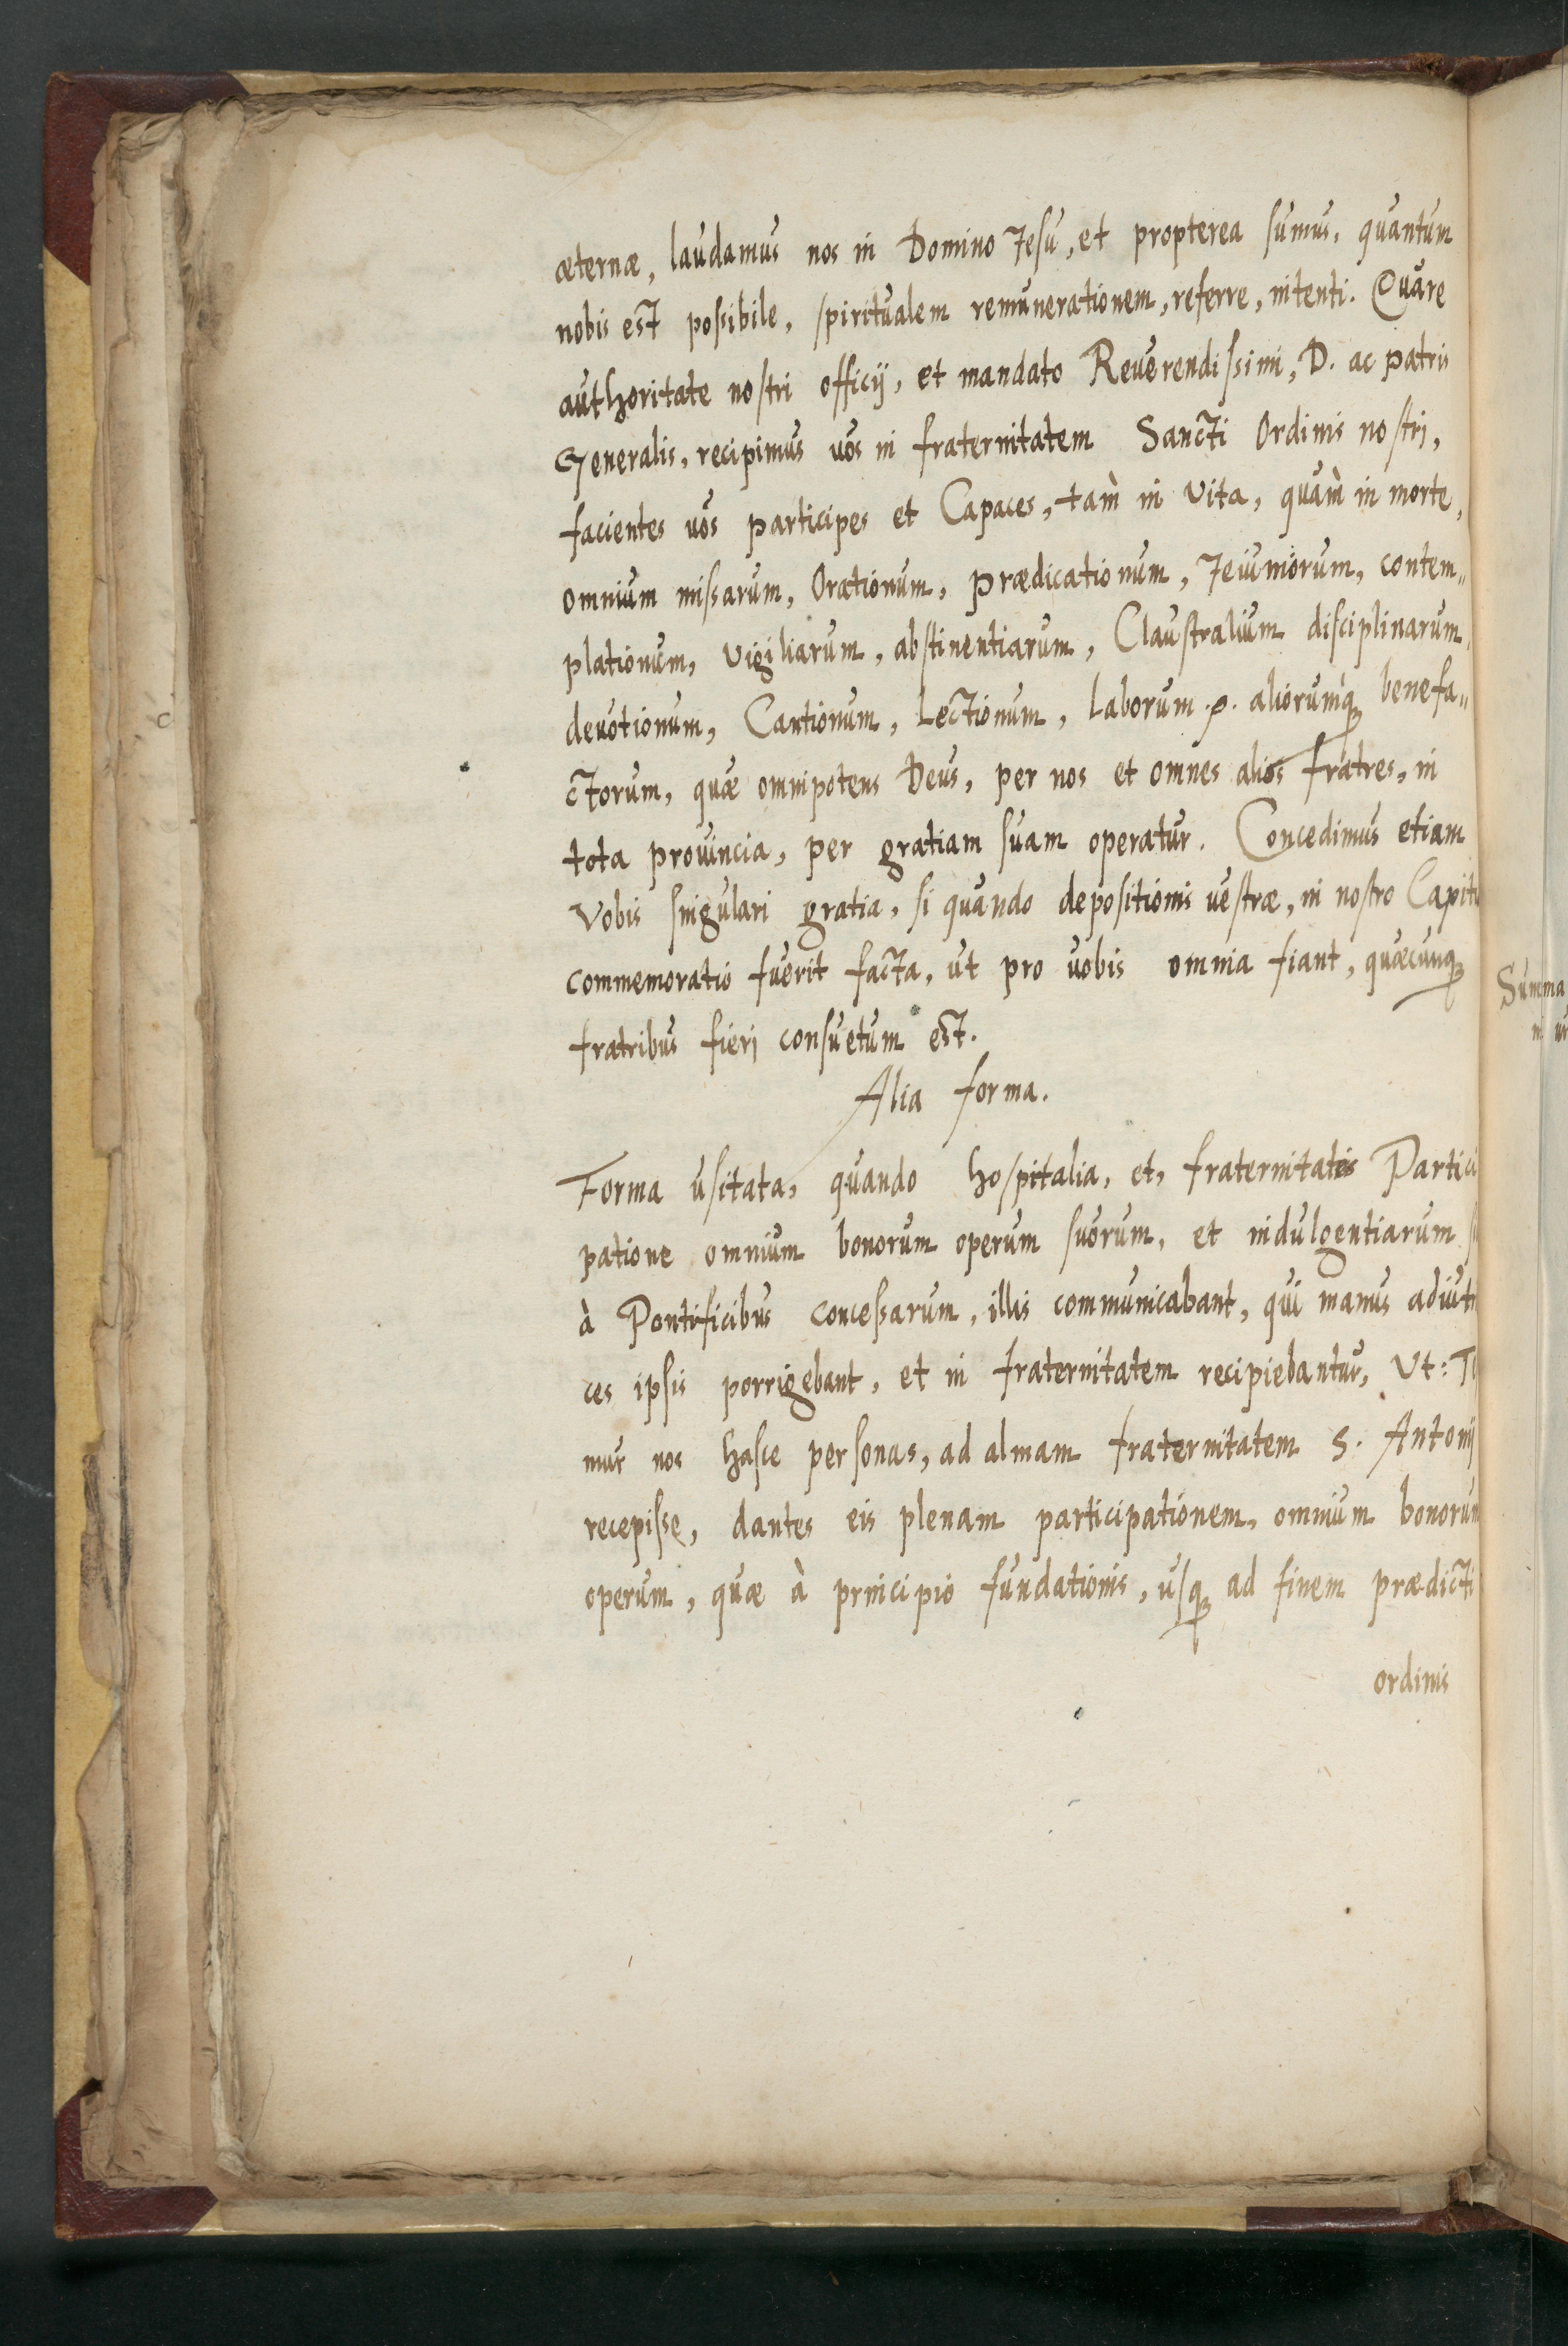 æternæ, laudamus nos in Domino Jesu, et propterea sumus, quantum
nobis est possibile, spiritualem remunerationem, referre, intenti. Quare
authoritate nostri officij, et mandato Reuerendissimi, D. ac patris
Generalis, recipimus uos in fraternitatem Sancti Ordinis nostri,
facientes uos participes et Capaces, tam̀ in vita, quam̀ in morte,
omnium missarum, Orationum, prædicationum, Jeiuniorum, contem„
plationum, vigiliarum, abstinentiarum, Claustralium disciplinarum,
deuotionum, Cantionum, Lectionum, laborum .p. aliorumq́ benefa„
ctorum, quæ omnipotens Deus, per nos et omnes alios fratres, in
tota prouincia, per gratiam suam operatur. Concedimus etiam
Vobis singulari gratia, si quando depositionis uestræ, in nostro Capitu
commemoratio fuerit facta, ut pro uobis omnia fiant, quæcunq
fratribus fieri consuetum est.
Alia forma.
Forma usitata, quando hospitalia, et, fraternitatis Partici
patione omnium bonorum operum suorum, et indulgentiarum
à Pontificibus concessarum, illis communicabant, qui manus adiutri
ces ipsis porrigebant, et in fraternitatem recipiebantur, Ut:
mur nos hasce personas, ad almam fraternitatem S. Antonij
recepisse, dantes eis plenam participationem, omnium bonorum
operum, quæ à principio fundationis, usq ad finem prædicti
ordinis
Summa